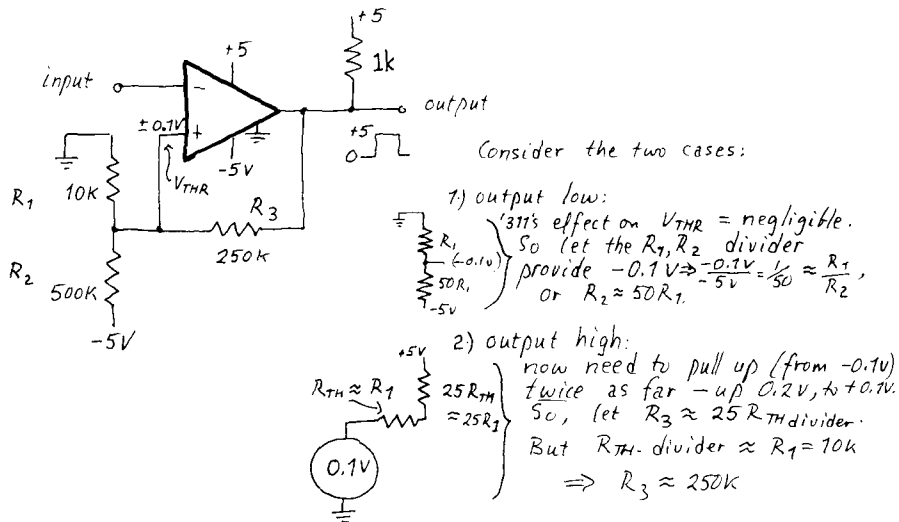 +5
+5
1k
input
−
output
± 0.1V
+
+5
0
-5V
VTHR
Consider the two cases:
R1
10K
R3
250K
R2
500K
-5V
1.) output low:
R1
(-0.1v)
50R1
-5V
'311's effect on VTHR = negligible.
So let the R1, R2 divider
provide -0.1V ⇒ -0.1V/-5V = 1/50 ≈ R1/R2,
or R2 ≈ 50R1.
2.) output high:
+5V
RTH ≈ R1
25RTH
≈25R1
0.1V
now need to pull up (from -0.1v)
twice as far – up 0.2V, to +0.1V.
So, let R3 ≈ 25 RTH divider.
But RTH- divider ≈ R1 = 10K
⇒ R3 ≈ 250K